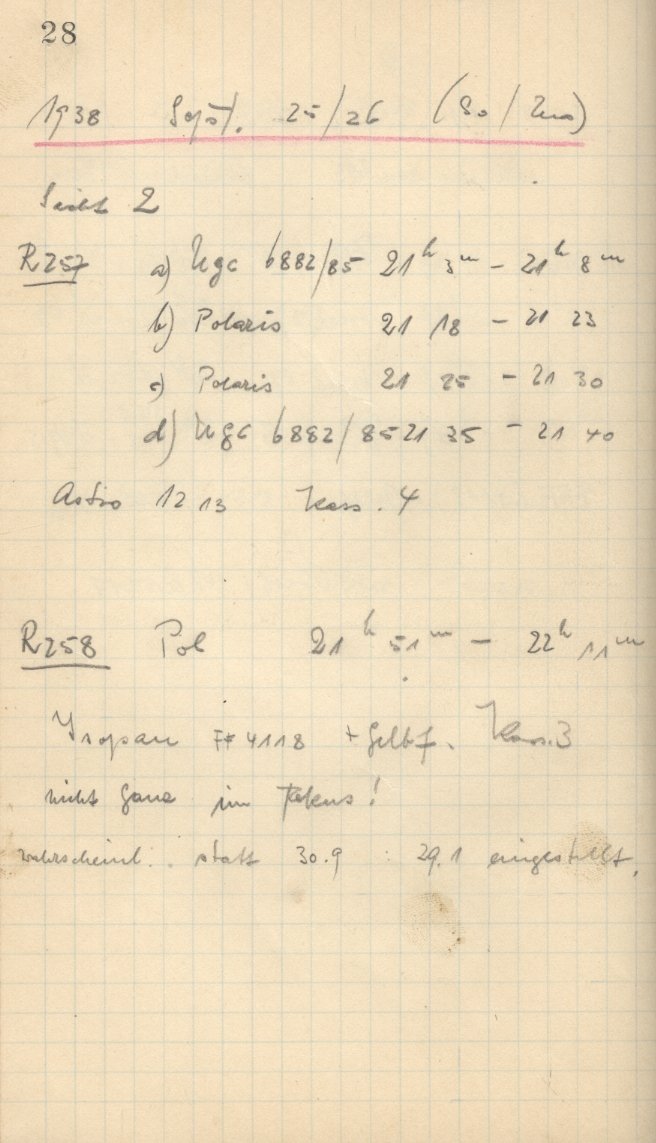 28
1938 Sept. 25/26 (So/
Sicht 2
R257 a) Ngc 6882/85 21h 3m – 21h 8m
b) Polaris 21 18 – 21 23
c) Polaris 21 25 – 21 30
d) Ngc 6882/85 21 35 – 21 40
Astro 12 13 Kass. 4
R258 Pol 21h 51m – 22h 11m
Isopan FF 4118 + Gelbf. Kass. 3
nicht ganz im Fokus!
wahrscheinl. statt 30.9 : 29.1 eingestellt.